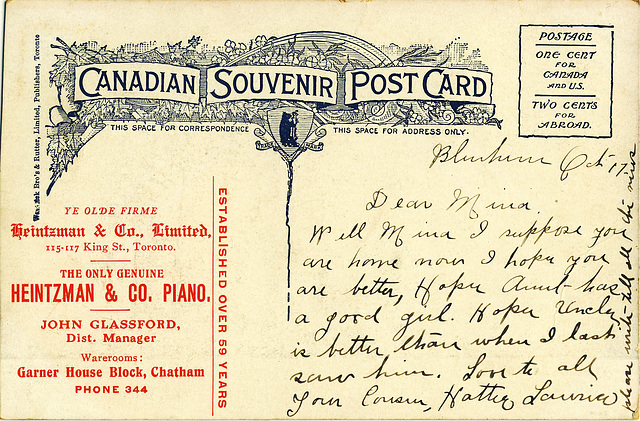 CANADIAN SOUVENIR POST CARD
THIS SPACE FOR CORRESPONDENCE
THIS SPACE FOR ADDRESS ONLY.
POSTAGE
ONE CENT
FOR
CANADA
AND U.S.
TWO CENTS
FOR
ABROAD.
Bro's & Rutter, Limited, Publishers, Toronto
YE OLDE FIRME
Heintzman & Co., Limited,
115-117 King St., Toronto.
THE ONLY GENUINE
HEINTZMAN & CO. PIANO.
JOHN GLASSFORD,
Dist. Manager
Warerooms:
Garner House Block, Chatham
PHONE 344
ESTABLISHED OVER 59 YEARS
Oct 17
Dear Mina
Well Mina I suppose you
are home now I hope you
are better, Hope Aunt has
a good girl. Hope Uncle
is better than when I last
saw him. Love to all
Your Cousin, Hattie
please write tell all the news